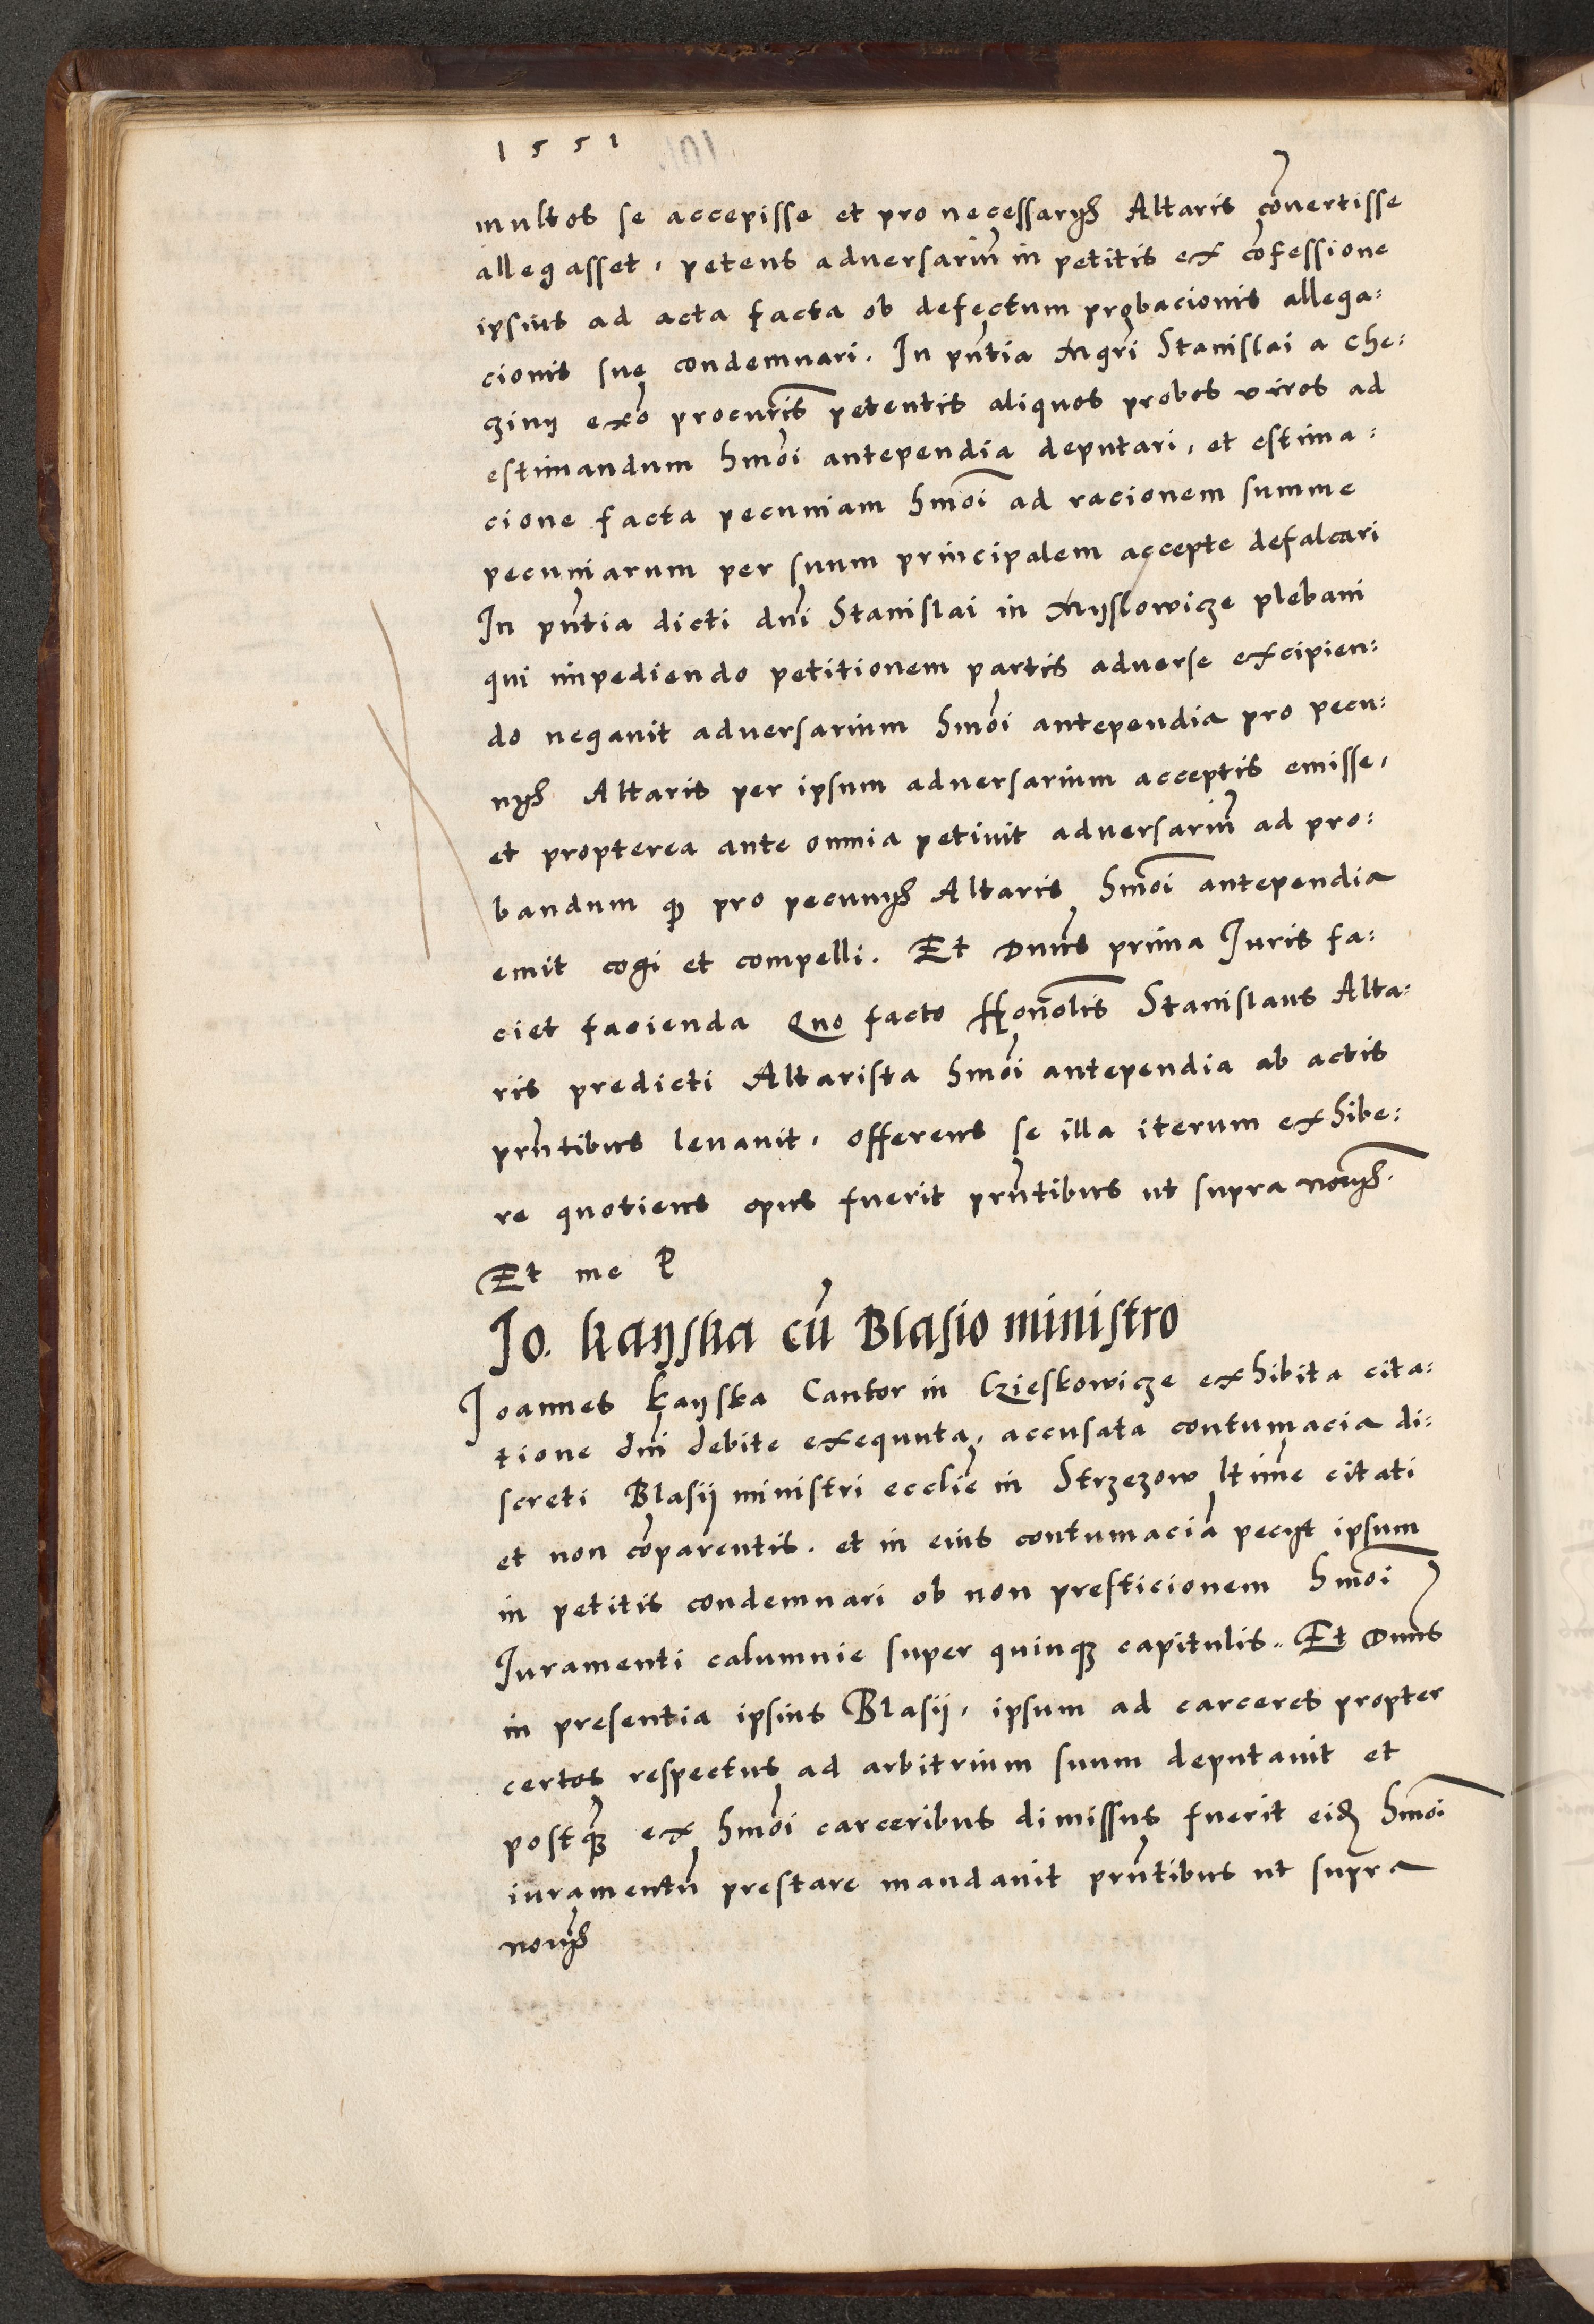 1551
multos se accepisse et pro necessarijs Altaris cõvertisse
allegasset, petens adversariũ in petitis ex cõfessione
ipsius ad acta facta ob defectum probacionis allega:
cionis sue condemnari. In pñtia Mgri Stanislai a Che:
cziny ex͠o procur͠is petentis aliquos probos viros ad
estimandum hm̃oi antependia deputari, et estima:
cione facta pecuniam hm̃oi ad racionem summe
pecuniarum per suum principalem accepte defalcari
In pñtia dicti dñi Stanislai in Myslowicze plebani
qui impediendo petitionem partis adverse excipien:
do negauit adversarium hm̃oi antependia pro pecu:
nijs Altaris per ipsum adversarium acceptis emisse,
et propterea ante omnia petiuit adversariũ ad pro:
bandum qꝫ pro pecunijs Altaris hm̃oi antependia
emit cogi et compelli. Et Dnũs prima Iuris fa:
ciet facienda Quo facto Honõlis Stanislaus Alta:
ris predicti Altarista hm̃oi antependia ab actis
prñtibus leuauit, offerens se illa iterum exhibe:
re quotiens opus fuerit prñtibus ut supra nõtijs.
Et me P
Jo. kayska cũ Blasio ministro
Joannes Kayska Cantor in Czieskowicze exhibita cita:
tione dñi debite exequuta, accusata contumacia di:
screti Blasij ministri ecclie͠ in Strzezow ltim̃e citati
et non cõparentis. et in eius contumaciã pecijt ipsum
in petitis condemnari ob non presticionem hm̃oi
Juramenti calumnie super quinqꝫ capitulis. Et Dnũs
in presentia ipsius Blasij, ipsum ad carceres propter
certos respectus ad arbitrium suum deputauit et
postqꝫ ex hm̃oi carceribus dimissus fuerit eidꝫ hm̃oi
iuramentũ prestare mandauit prñtibus ut supra
nõtijs